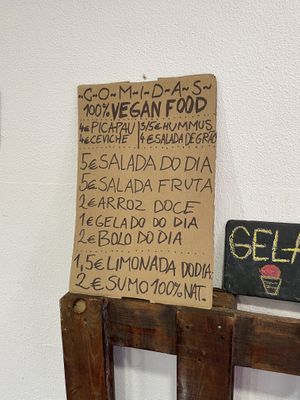 ~C~O~M~I~D~A~S~
100% VEGAN FOOD
4€ PICAPAU
3/5€ HUMMUS
4€ CEVICHE
4€ SALADA DE GRÃO
5€ SALADA DO DIA
5€ SALADA FRUTA
2€ ARROZ DOCE
1€ GELADO DO DIA
2€ BOLO DO DIA
1,5€ LIMONADA DO DIA
2€ SUMO 100% NAT.
GELA